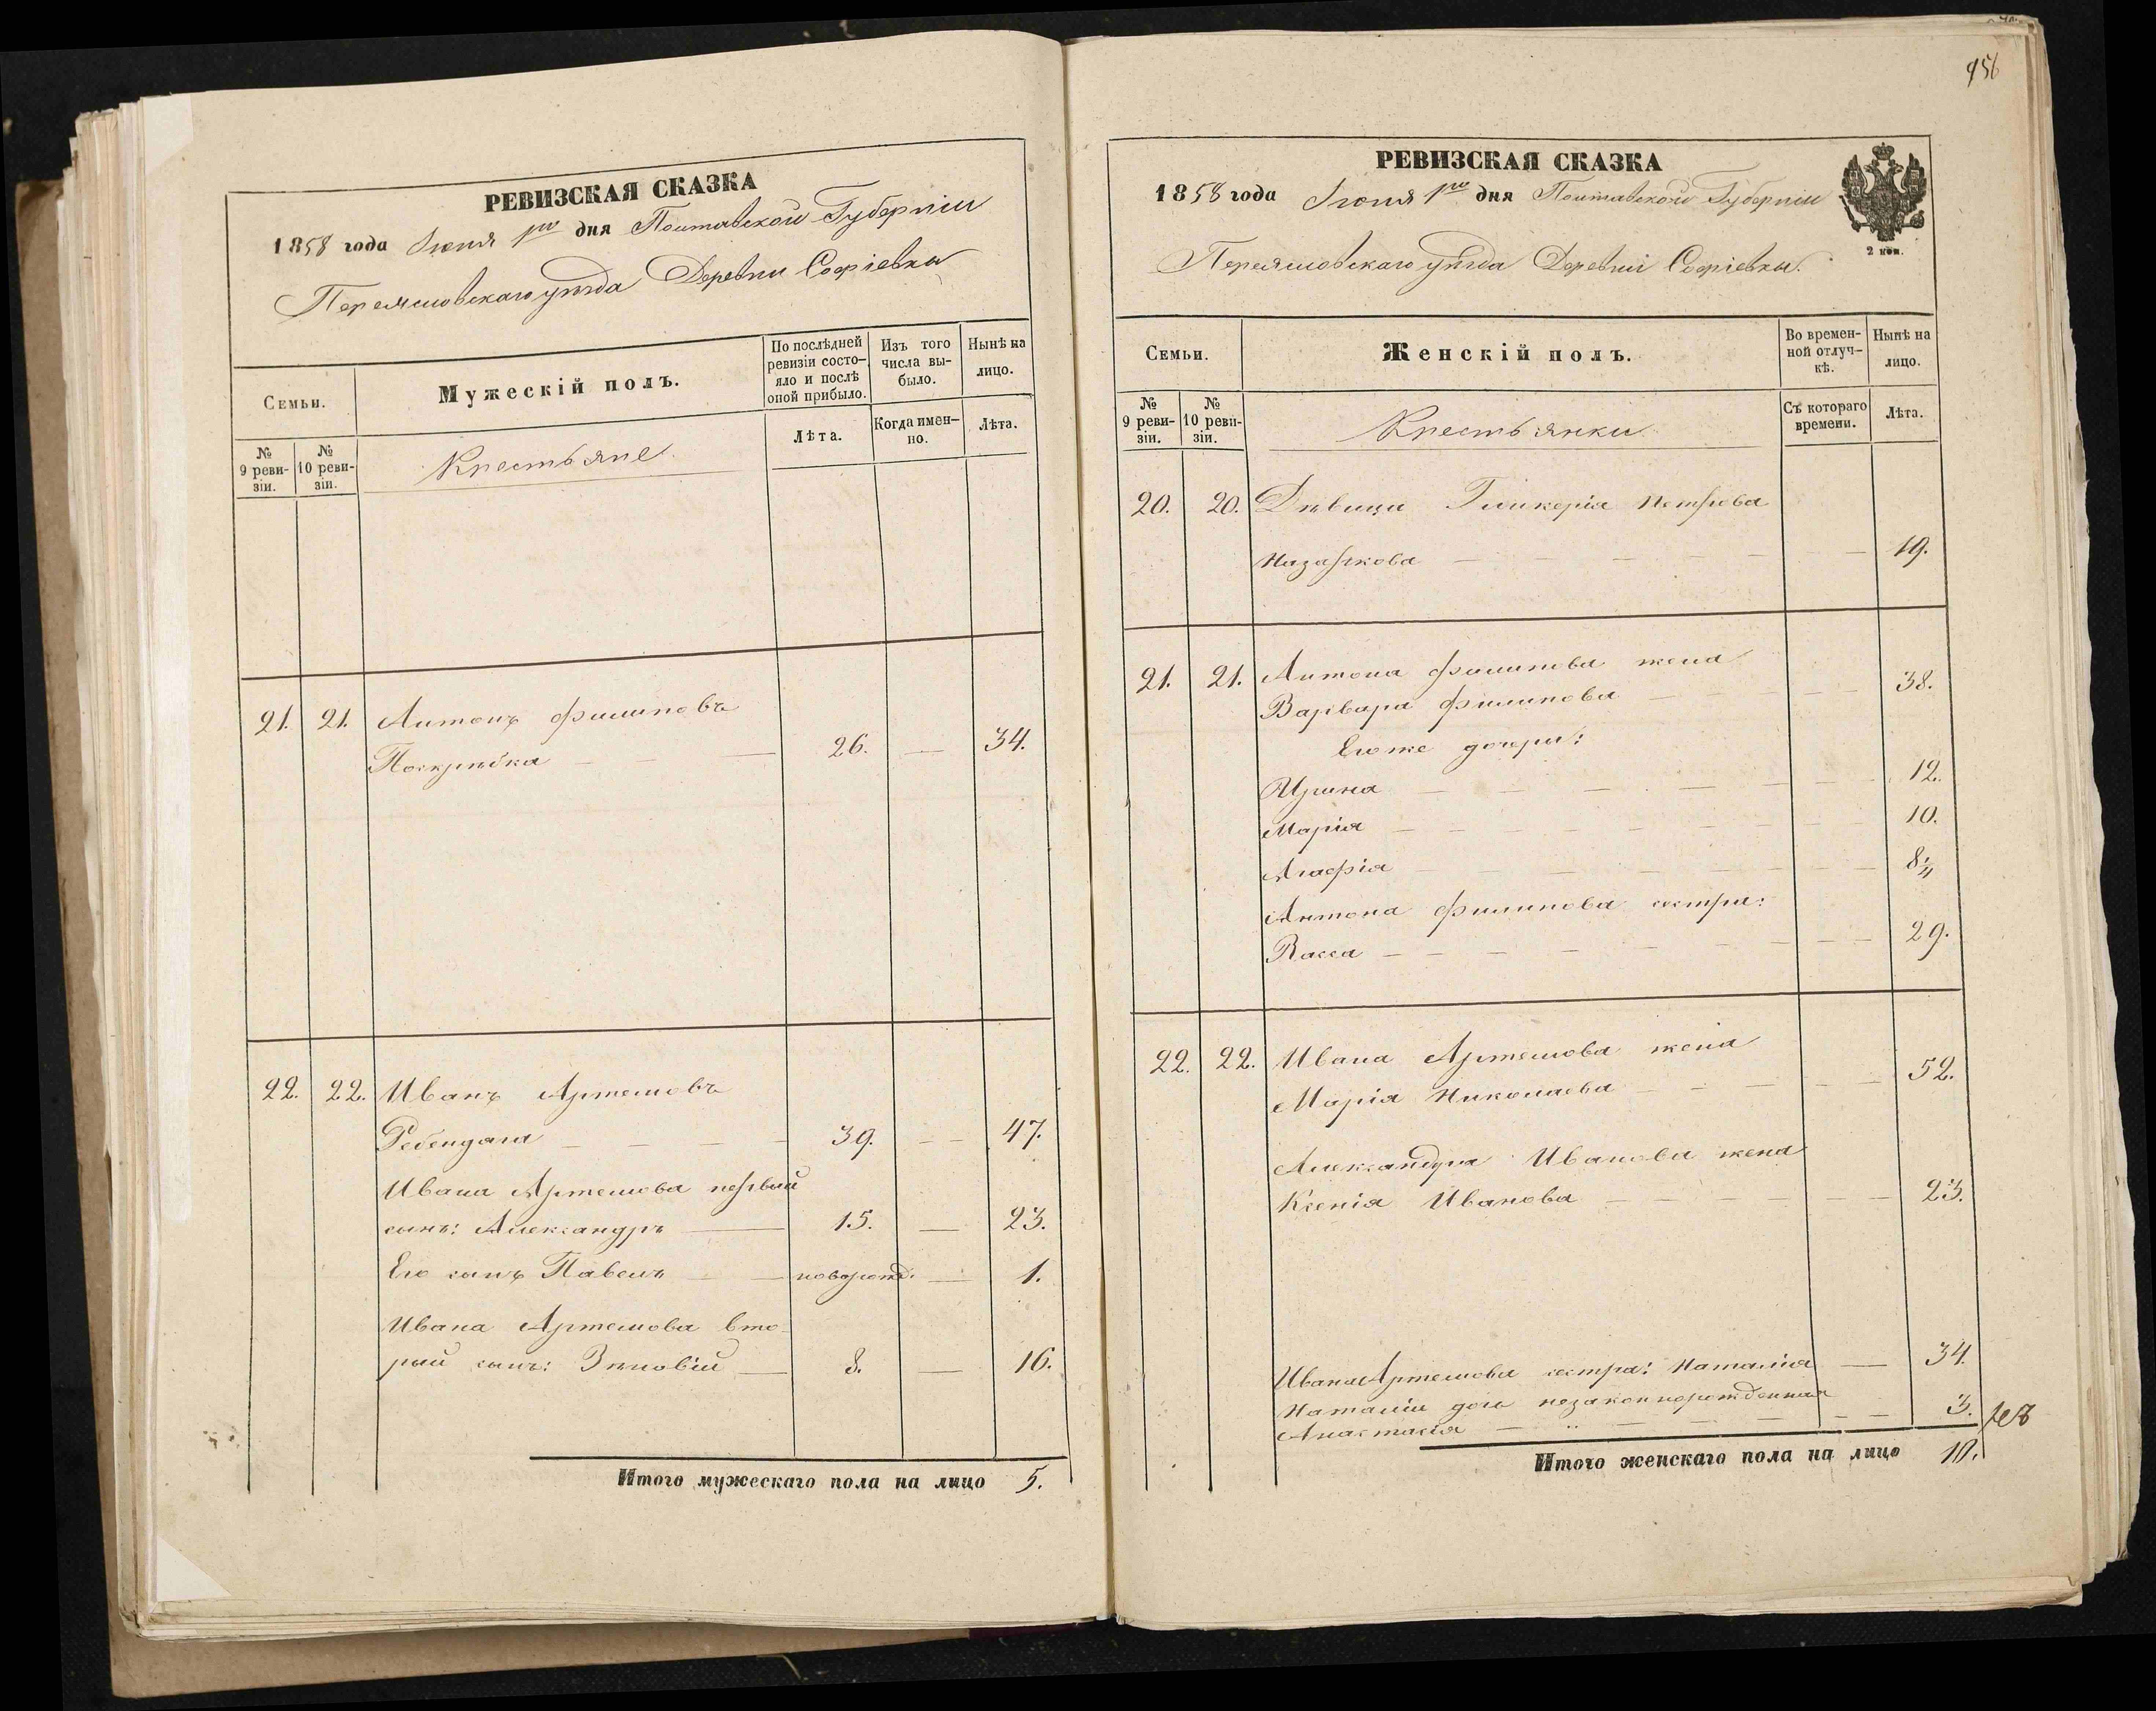 РЕВИЗСКАЯ СКАЗКА
1858 года Июня 1го дня Полтавской Губерніи
Переяславскаго уѣзда Деревни Софіевки
Семьи.
Мужескій полъ.
По послѣдней ревизіи состояло и послѣ оной прибыло.
Изъ того числа выбыло.
Нынѣ на лицо.
№ 9 ревизіи.
№ 10 ревизіи.
Крестьяне
Лѣта.
Когда именно.
Лѣта.
21. 21. Антонъ Филиповъ
26. — 34.
22. 22. Иванъ Артемовъ
Ребендага — — — — 39. — — 47.
Ивана Артемова первый
сынъ: Александръ — 15. — 23.
Его сынъ Павелъ — — новорожд: — 1.
Ивана Артемова вто-
рый сынъ: Зѣновій — 8. — 16.
Итого мужескаго пола на лицо 5.
956
РЕВИЗСКАЯ СКАЗКА
1858 года Июня 1го дня Полтавской Губерніи
2 коп.
Переяславскаго уѣзда Деревни Софіевки.
Семьи.
Женскій полъ.
Во временной отлучкѣ.
Нынѣ на лицо.
№ 9 ревизіи.
№ 10 ревизіи.
Крестьянки
Съ котораго времени.
Лѣта.
20. 20. Дѣвица Гликерія Петрова
Назаркова — — — — — — 19.
21. 21. Антона Филипова жена
Варвара Филипова — — — — — 38.
Егоже дочери:
Ирина — — — — — — — 12.
Марія — — — — — — — — 10.
Агафія — — — — — — — — 8¼
Антона Филипова сестра:
Васса — — — — — — — 29.
22. 22. Ивана Артемова жена
Марія Николаева — — — — — 52.
Александра Иванова жена
Ксенія Иванова — — — — — — 23.
Ивана Артемова сестра: Наталія — 34.
Наталіи дочь незаконнорожденная
Анастасія — — — — — — — 3.
Итого женскаго пола на лицо 10.